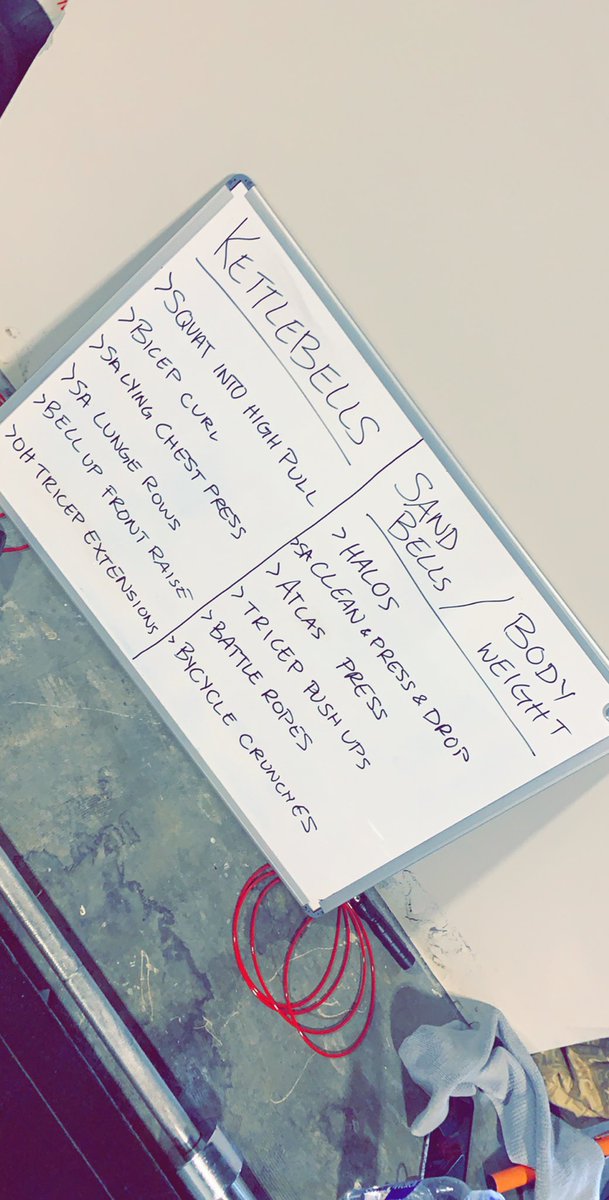 KETTLEBELLS
>SQUAT INTO HIGH PULL
>BICEP CURL
>SA LYING CHEST PRESS
>SA LUNGE ROWS
>BELL UP FRONT RAISE
>OH TRICEP EXTENSIONS
SAND / BODY
BELLS WEIGHT
>HALOS
>SA CLEAN & PRESS & DROP
>ATLAS PRESS
>TRICEP PUSH UPS
>BATTLE ROPES
>BYCYCLE CRUNCHES